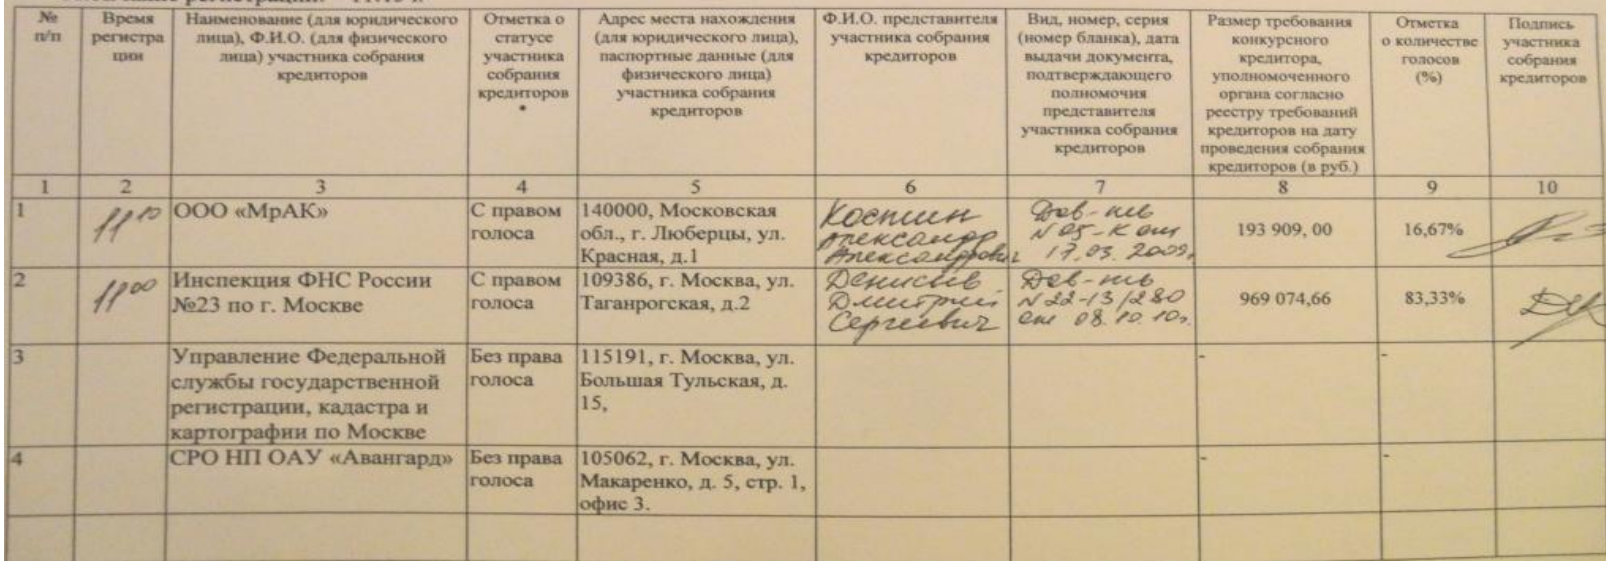 № п/п
Время регистра ции
Наименование (для юридического лица), Ф.И.О. (для физического лица) участника собрания кредиторов
Отметка о статусе участника собрания кредиторов *
Адрес места нахождения (для юридического лица), паспортные данные (для физического лица) участника собрания кредиторов
Ф.И.О. представителя участника собрания кредиторов
Вид, номер, серия (номер бланка), дата выдачи документа, подтверждающего полномочия представителя участника собрания кредиторов
Размер требования конкурсного кредитора, уполномоченного органа согласно реестру требований кредиторов на дату проведения собрания кредиторов (в руб.)
Отметка о количестве голосов (%)
Подпись участника собрания кредиторов
1 2 3 4 5 6 7 8 9 10
1
ООО «МрАК»
С правом
голоса
140000, Московская
обл., г. Люберцы, ул.
Красная, д.1
Костин
Александр
Александрович
Дов-ть
17.03.2009г
193 909, 00
16,67%
2
11 00
Инспекция ФНС России
№23 по г. Москве
С правом
голоса
109386, г. Москва, ул.
Таганрогская, д.2
Денисов
Дмитрий
Сергеевич
Дов-ть
N 22-13/280
от 08.10.10г.
969 074,66
83,33%
3
Управление Федеральной
службы государственной
регистрации, кадастра и
картографии по Москве
Без права
голоса
115191, г. Москва, ул.
Большая Тульская, д.
15,
-
-
4
СРО НП ОАУ «Авангард»
Без права
голоса
105062, г. Москва, ул.
Макаренко, д. 5, стр. 1,
офис 3.
-
-